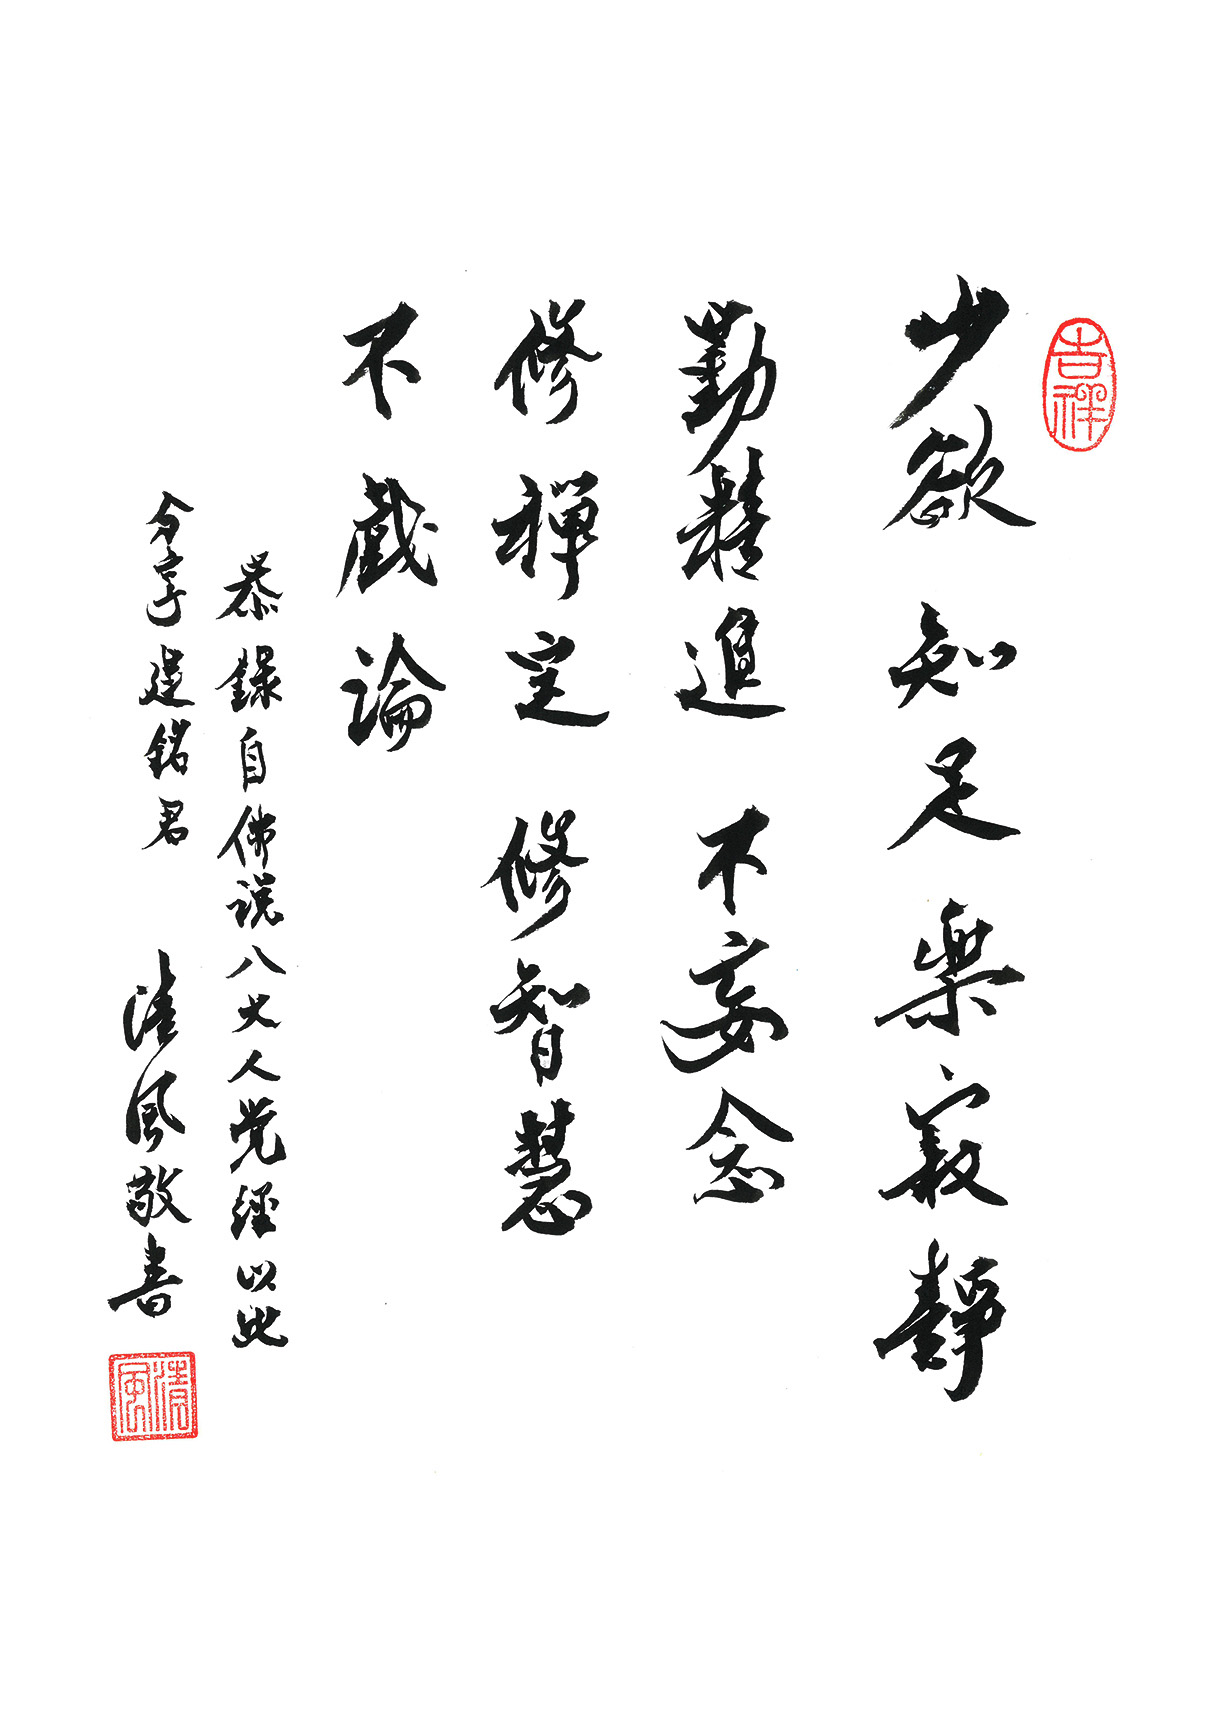 吉祥
少欲 知足 樂寂靜
勤精進 不妄念
修禅定 修智慧
不戯論
恭録自佛説八大人覚經以此
分享建銘君 清風敬書
清風